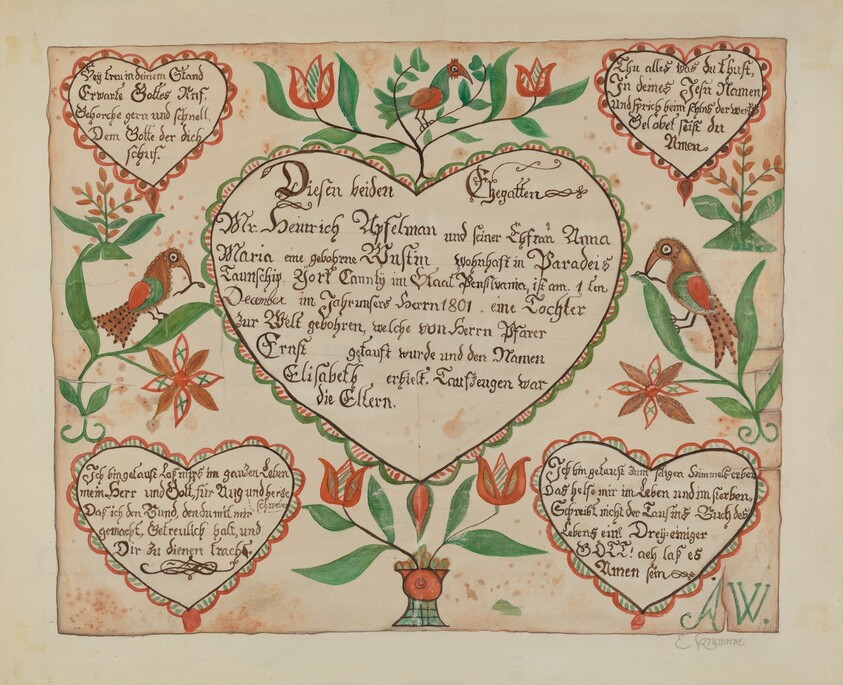 Sey treu in deinem Stand
Erwarte Gottes Ruf,
Gehorche gern und schnell,
Dem Gotte der dich
schuf.
Thu alles was du thust,
In deines Jesu Namen
Und sprich beim schlus der werke
Gelobet seist du
Amen.
Diesen beiden Ehegatten
Mr. Heinrich Apfelman und seiner Ehfrau Anna
Maria eine gebohrne Wustin wohnhaft in Paradeis
Taunschip York Caunty im Staat Pensilvania, ist am 1 ten
December im Jahr unsers Herrn 1801. eine Tochter
zur Welt gebohren, welche von Herrn Pfarer
Ernst getauft wurde und den Namen
Elisabeth erhielt. Taufzeugen war
die Eltern.
Ich bin getauft laß mirs im ganzen Leben
mein Herr und Gott, für Aug und herze
schweben
Daß ich den Bund, den du mit mir
gemacht, Getreulich halt, und
Dir zu dienen tracht.
Ich bin getauft zum selgen Himmels erben
Das helf mir im Leben und im sterben,
Schreibt nicht der Taufe ins Buch des
Lebens ein! Drey-einiger
GOTT! ach laß es
Amen sein
A W.
E.